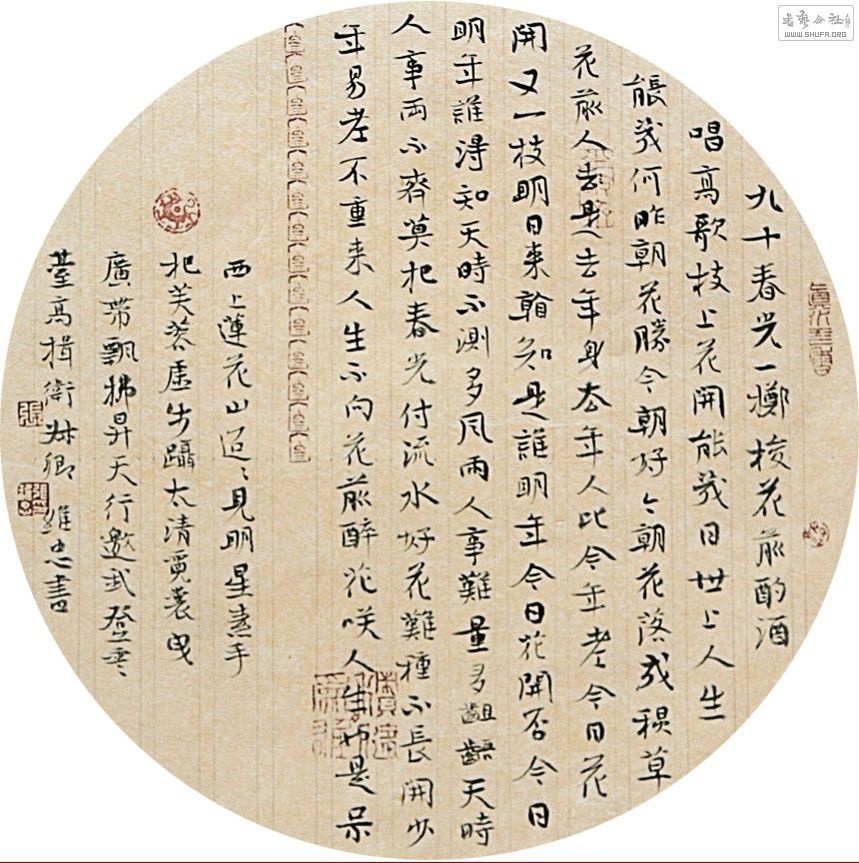 九十春光一擲梭花前酌酒
唱高歌枝上花開能幾日世上人生
能幾何昨朝花勝今朝好今朝花落成秋草
花前人去是去年身去年人比今年老今日花
開又一枝明日來看知是誰明年今日花開否今日
明年誰得知天時不測多風雨人事難量多齟齬天時
人事兩不齊莫把春光付流水好花難種不長開少
年易老不重來人生不向花前醉花咲人生也是呆
西上蓮花山迢〻見明星素手
把芙蓉虛步躡太清霓裳曳
廣帶飄拂昇天行邀我登雲
臺高揖衛叔卿 維忠書
書藝公社
WWW.SHUFA.ORG